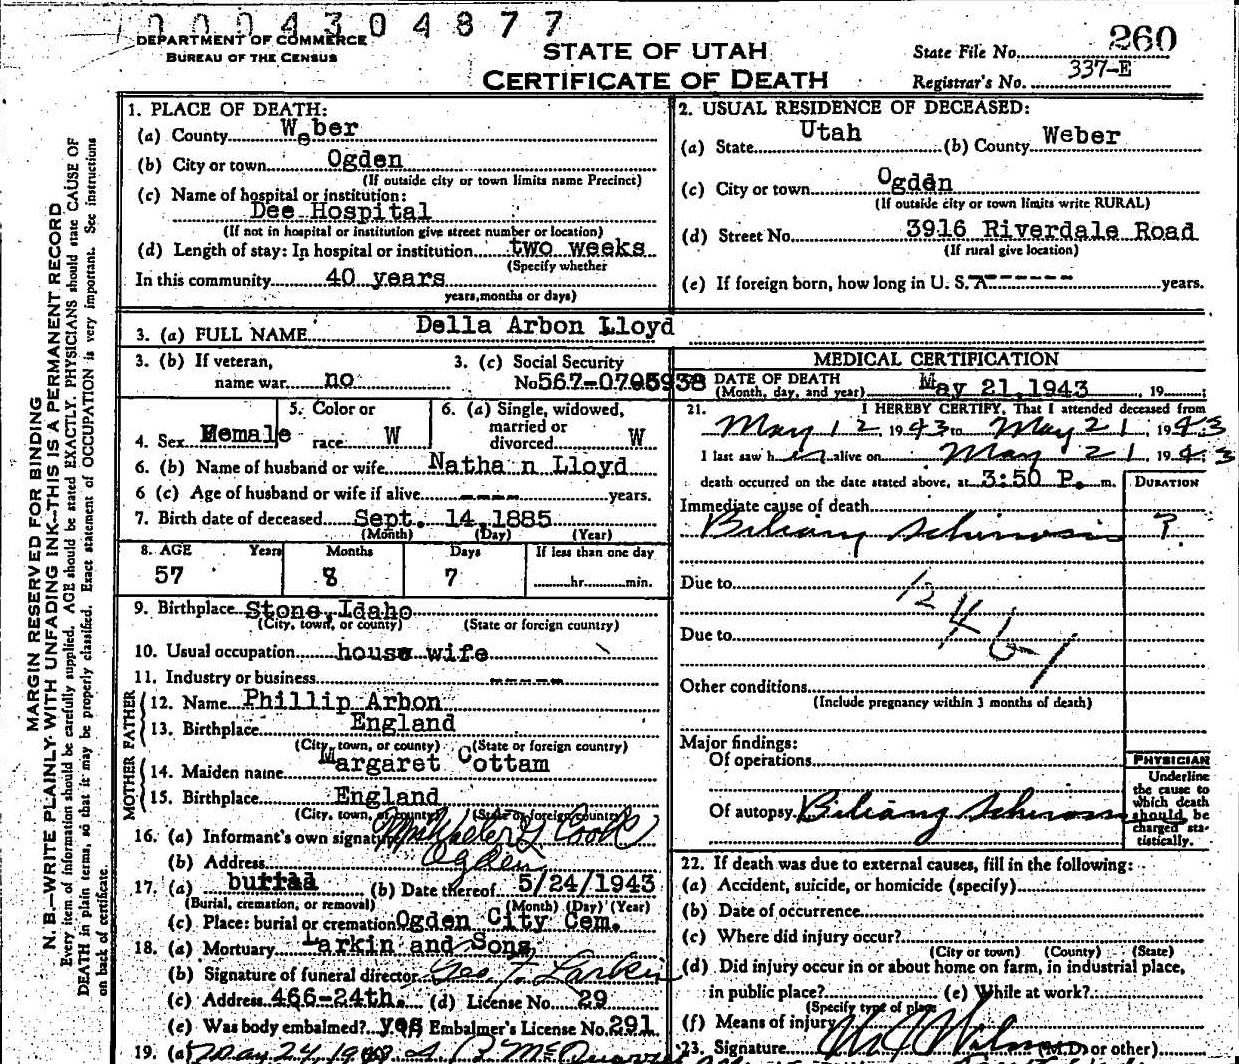 0004304877
DEPARTMENT OF COMMERCE
BUREAU OF THE CENSUS
STATE OF UTAH
CERTIFICATE OF DEATH
State File No. 260
Registrar's No. 337-E
MARGIN RESERVED FOR BINDING
N. B.—WRITE PLAINLY WITH UNFADING INK—THIS IS A PERMANENT RECORD
Every item of information should be carefully supplied. AGE should be stated EXACTLY. PHYSICIANS should state CAUSE OF
DEATH in plain terms, so that it may be properly classified. Exact statement of OCCUPATION is very important. See instructions
on back of certificate.
1. PLACE OF DEATH:
(a) County Weber
(b) City or town Ogden
(If outside city or town limits name Precinct)
(c) Name of hospital or institution:
Dee Hospital
(If not in hospital or institution give street number or location)
(d) Length of stay: In hospital or institution two weeks
(Specify whether
In this community 40 years
years, months or days)
2. USUAL RESIDENCE OF DECEASED:
(a) State Utah (b) County Weber
(c) City or town Ogden
(If outside city or town limits write RURAL)
(d) Street No. 3916 Riverdale Road
(If rural give location)
(e) If foreign born, how long in U. S. A years.
3. (a) FULL NAME Della Arbon Lloyd
3. (b) If veteran, name war no
3. (c) Social Security No 567-07
4. Sex Female
5. Color or race W
6. (a) Single, widowed, married or divorced W
6. (b) Name of husband or wife Nathan Lloyd
6 (c) Age of husband or wife if alive ---- years.
7. Birth date of deceased Sept. 14, 1885
(Month) (Day) (Year)
8. AGE Years Months Days If less than one day
57 8 7 hr. min.
9. Birthplace Stone, Idaho
(City, town, or county) (State or foreign country)
10. Usual occupation house wife
11. Industry or business -----
FATHER
12. Name Phillip Arbon
13. Birthplace England
(City, town, or county) (State or foreign country)
MOTHER
14. Maiden name Margaret Cottam
15. Birthplace England
(City, town, or county) (State or foreign country)
16. (a) Informant's own signature Mrs Walter G Cook
(b) Address Ogden
17. (a) burial (b) Date thereof 5/24/1943
(Burial, cremation, or removal) (Month) (Day) (Year)
(c) Place: burial or cremation Ogden City Cem.
18. (a) Mortuary Larkin and Sons
(b) Signature of funeral director Geo. T. Larkin
(c) Address 466-24th. (d) License No. 29
(e) Was body embalmed? yes Embalmer's License No. 291
19. (a) May 24, 1943
MEDICAL CERTIFICATION
DATE OF DEATH
(Month, day, and year) May 21, 1943 , 19
21. I HEREBY CERTIFY, That I attended deceased from
May 12, 1943 to May 21 1943
I last saw her alive on May 21, 1943
death occurred on the date stated above, at 3:50 P. m.
DURATION
Immediate cause of death
Biliary Schirrosis ?
Due to
124 b-1
Due to
Other conditions
(Include pregnancy within 3 months of death)
Major findings:
Of operations
Of autopsy Biliary Schirrosis
PHYSICIAN
Underline
the cause to
which death
should be
charged sta-
tistically.
22. If death was due to external causes, fill in the following:
(a) Accident, suicide, or homicide (specify)
(b) Date of occurrence
(c) Where did injury occur?
(City or town) (County) (State)
(d) Did injury occur in or about home on farm, in industrial place,
in public place? (e) While at work?
(Specify type of place
(f) Means of injury
23. Signature (M.D. or other)